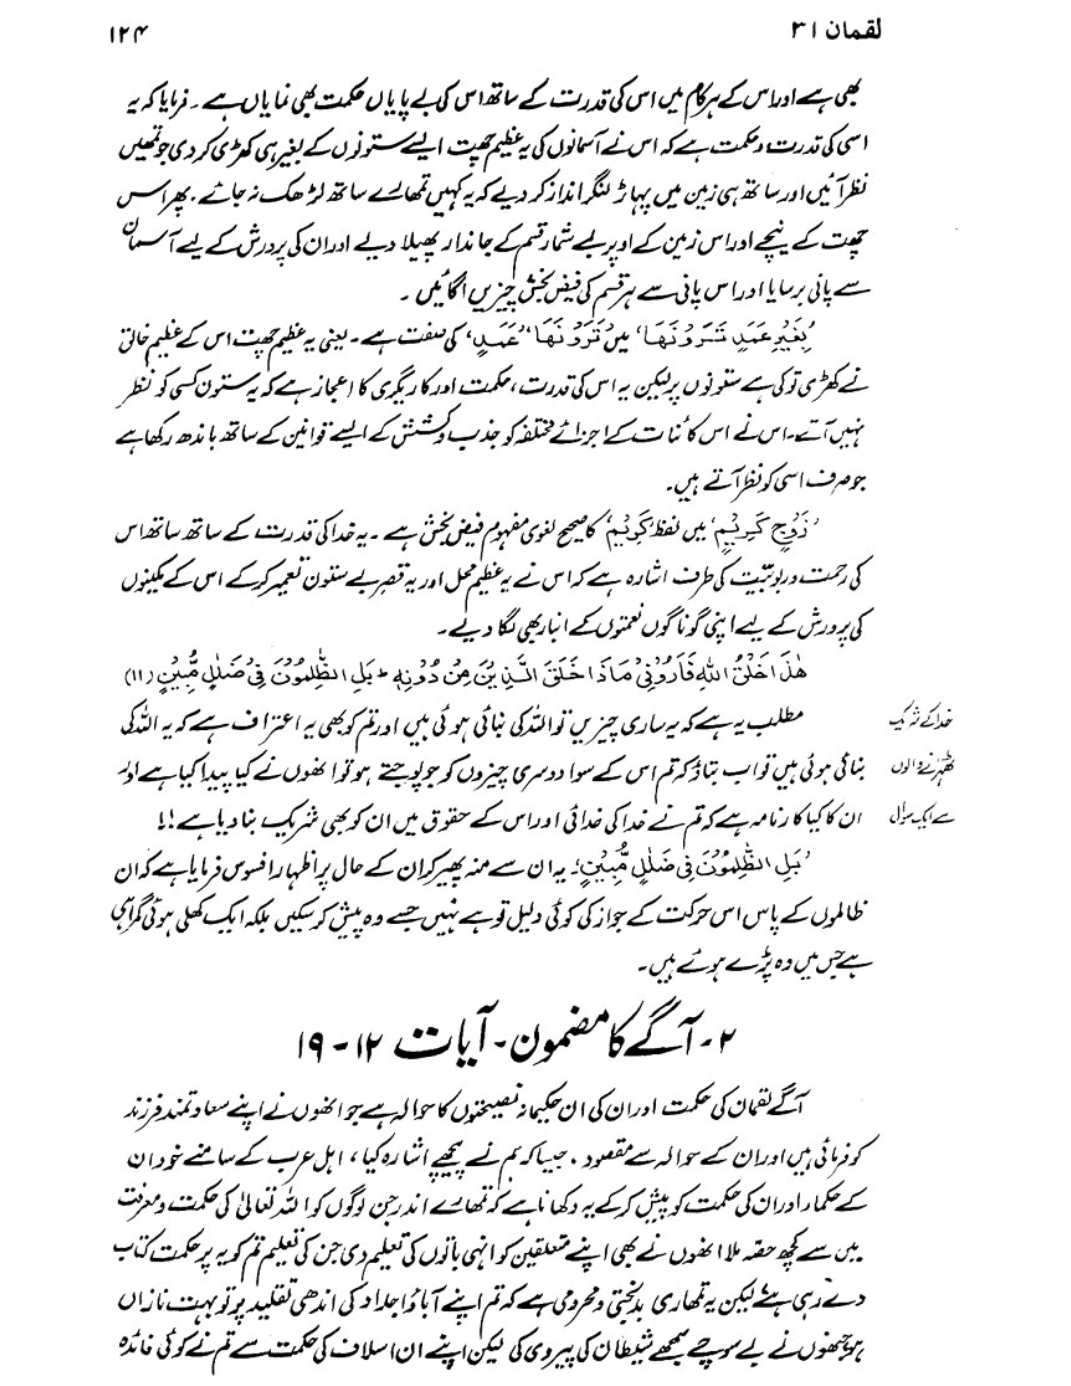 لقمان ۳۱
۱۲۴
بھی ہے اور اس کے ہر کام میں اس کی قدرت کے ساتھ اس کی بے پایاں حکمت بھی نمایاں ہے۔ فرمایا کہ یہ
اسی کی قدرت و حکمت ہے کہ اس نے آسمانوں کی یہ عظیم چھت ایسے ستونوں کے بغیر ہی کھڑی کر دی جو تمھیں
نظر آئیں اور ساتھ ہی زمین میں پہاڑ لنگر انداز کر دیے کہ یہ کہیں تمھارے ساتھ لڑھک نہ جائے۔ پھر اس
چھت کے نیچے اور اس زمین کے اوپر بے شمار قسم کے جاندار پھیلا دیے اور ان کی پرورش کے لیے آسمان
سے پانی برسایا اور اس پانی سے ہر قسم کی فیض بخش چیزیں اگائیں۔
'بِغَيْرِ عَمَدٍ تَرَوْنَهَا' میں 'تَرَوْنَهَا' 'عَمَدٍ' کی صفت ہے۔ یعنی یہ عظیم چھت اس کے عظیم خالق
نے کھڑی تو کی ہے ستونوں پر لیکن یہ اس کی قدرت، حکمت اور کاریگری کا اعجاز ہے کہ یہ ستون کسی کو نظر
نہیں آتے۔ اس نے اس کائنات کے اجزائے مختلفہ کو جذب و کشش کے ایسے قوانین کے ساتھ باندھ رکھا ہے
جو صرف اسی کو نظر آتے ہیں۔
'زَوْجٍ كَرِيْمٍ' میں لفظ 'كَرِيْمٍ' کا صحیح لغوی مفہوم فیض بخش ہے۔ یہ خدا کی قدرت کے ساتھ ساتھ اس
کی رحمت و ربوبیّت کی طرف اشارہ ہے کہ اس نے یہ عظیم محل اور یہ قصر بے ستون تعمیر کرکے اس کے مکینوں
کی پرورش کے لیے اپنی گوناگوں نعمتوں کے انبار بھی لگا دیے۔
هٰذَا خَلْقُ اللهِ فَاَرُوْنِيْ مَاذَا خَلَقَ الَّذِيْنَ مِنْ دُوْنِهٖ ؕ بَلِ الظّٰلِمُوْنَ فِيْ ضَلٰلٍ مُّبِيْنٍ (۱۱)
خدا کے شریک
مطلب یہ ہے کہ یہ ساری چیزیں تو اللہ کی بنائی ہوئی ہیں اور تم کو بھی یہ اعتراف ہے کہ یہ اللہ کی
ٹھہرنے والوں
بنائی ہوئی ہیں تو اب بتاؤ کہ تم اس کے سوا دوسری چیزوں کو جو پوجتے ہو تو انھوں نے کیا پیدا کیا ہے اور
سے ایک سوال
ان کا کیا کارنامہ ہے کہ تم نے خدا کی خدائی اور اس کے حقوق میں ان کو بھی شریک بنا دیا ہے!!
'بَلِ الظّٰلِمُوْنَ فِيْ ضَلٰلٍ مُّبِيْنٍ'۔ یہ ان سے منہ پھیر کر ان کے حال پر اظہار افسوس فرمایا ہے کہ ان
ظالموں کے پاس اس حرکت کے جواز کی کوئی دلیل تو ہے نہیں جسے وہ پیش کر سکیں بلکہ ایک کھلی ہوئی گمراہی
ہے جس میں وہ پڑے ہوئے ہیں۔
۲- آگے کا مضمون - آیات ۱۲-۱۹
آگے لقمان کی حکمت اور ان کی ان حکیمانہ نصیحتوں کا حوالہ ہے جو انھوں نے اپنے سعادتمند فرزند
کو فرمائی ہیں اور ان کے حوالہ سے مقصود، جیسا کہ ہم نے پیچھے اشارہ کیا، اہل عرب کے سامنے خود ان
کے حکماء اور ان کی حکمت کو پیش کرکے یہ دکھانا ہے کہ تمھارے اندر جن لوگوں کو اللہ تعالیٰ کی حکمت و معرفت
میں سے کچھ حصّہ ملا انھوں نے بھی اپنے متعلقین کو انہی باتوں کی تعلیم دی جن کی تعلیم تم کو یہ پر حکمت کتاب
دے رہی ہے لیکن یہ تمھاری بدبختی و محرومی ہے کہ تم اپنے آباؤ اجداد کی اندھی تقلید پر تو بہت نازاں
ہو جنھوں نے بے سوچے سمجھے شیطان کی پیروی کی لیکن اپنے ان اسلاف کی حکمت سے تم نے کوئی فائدہ